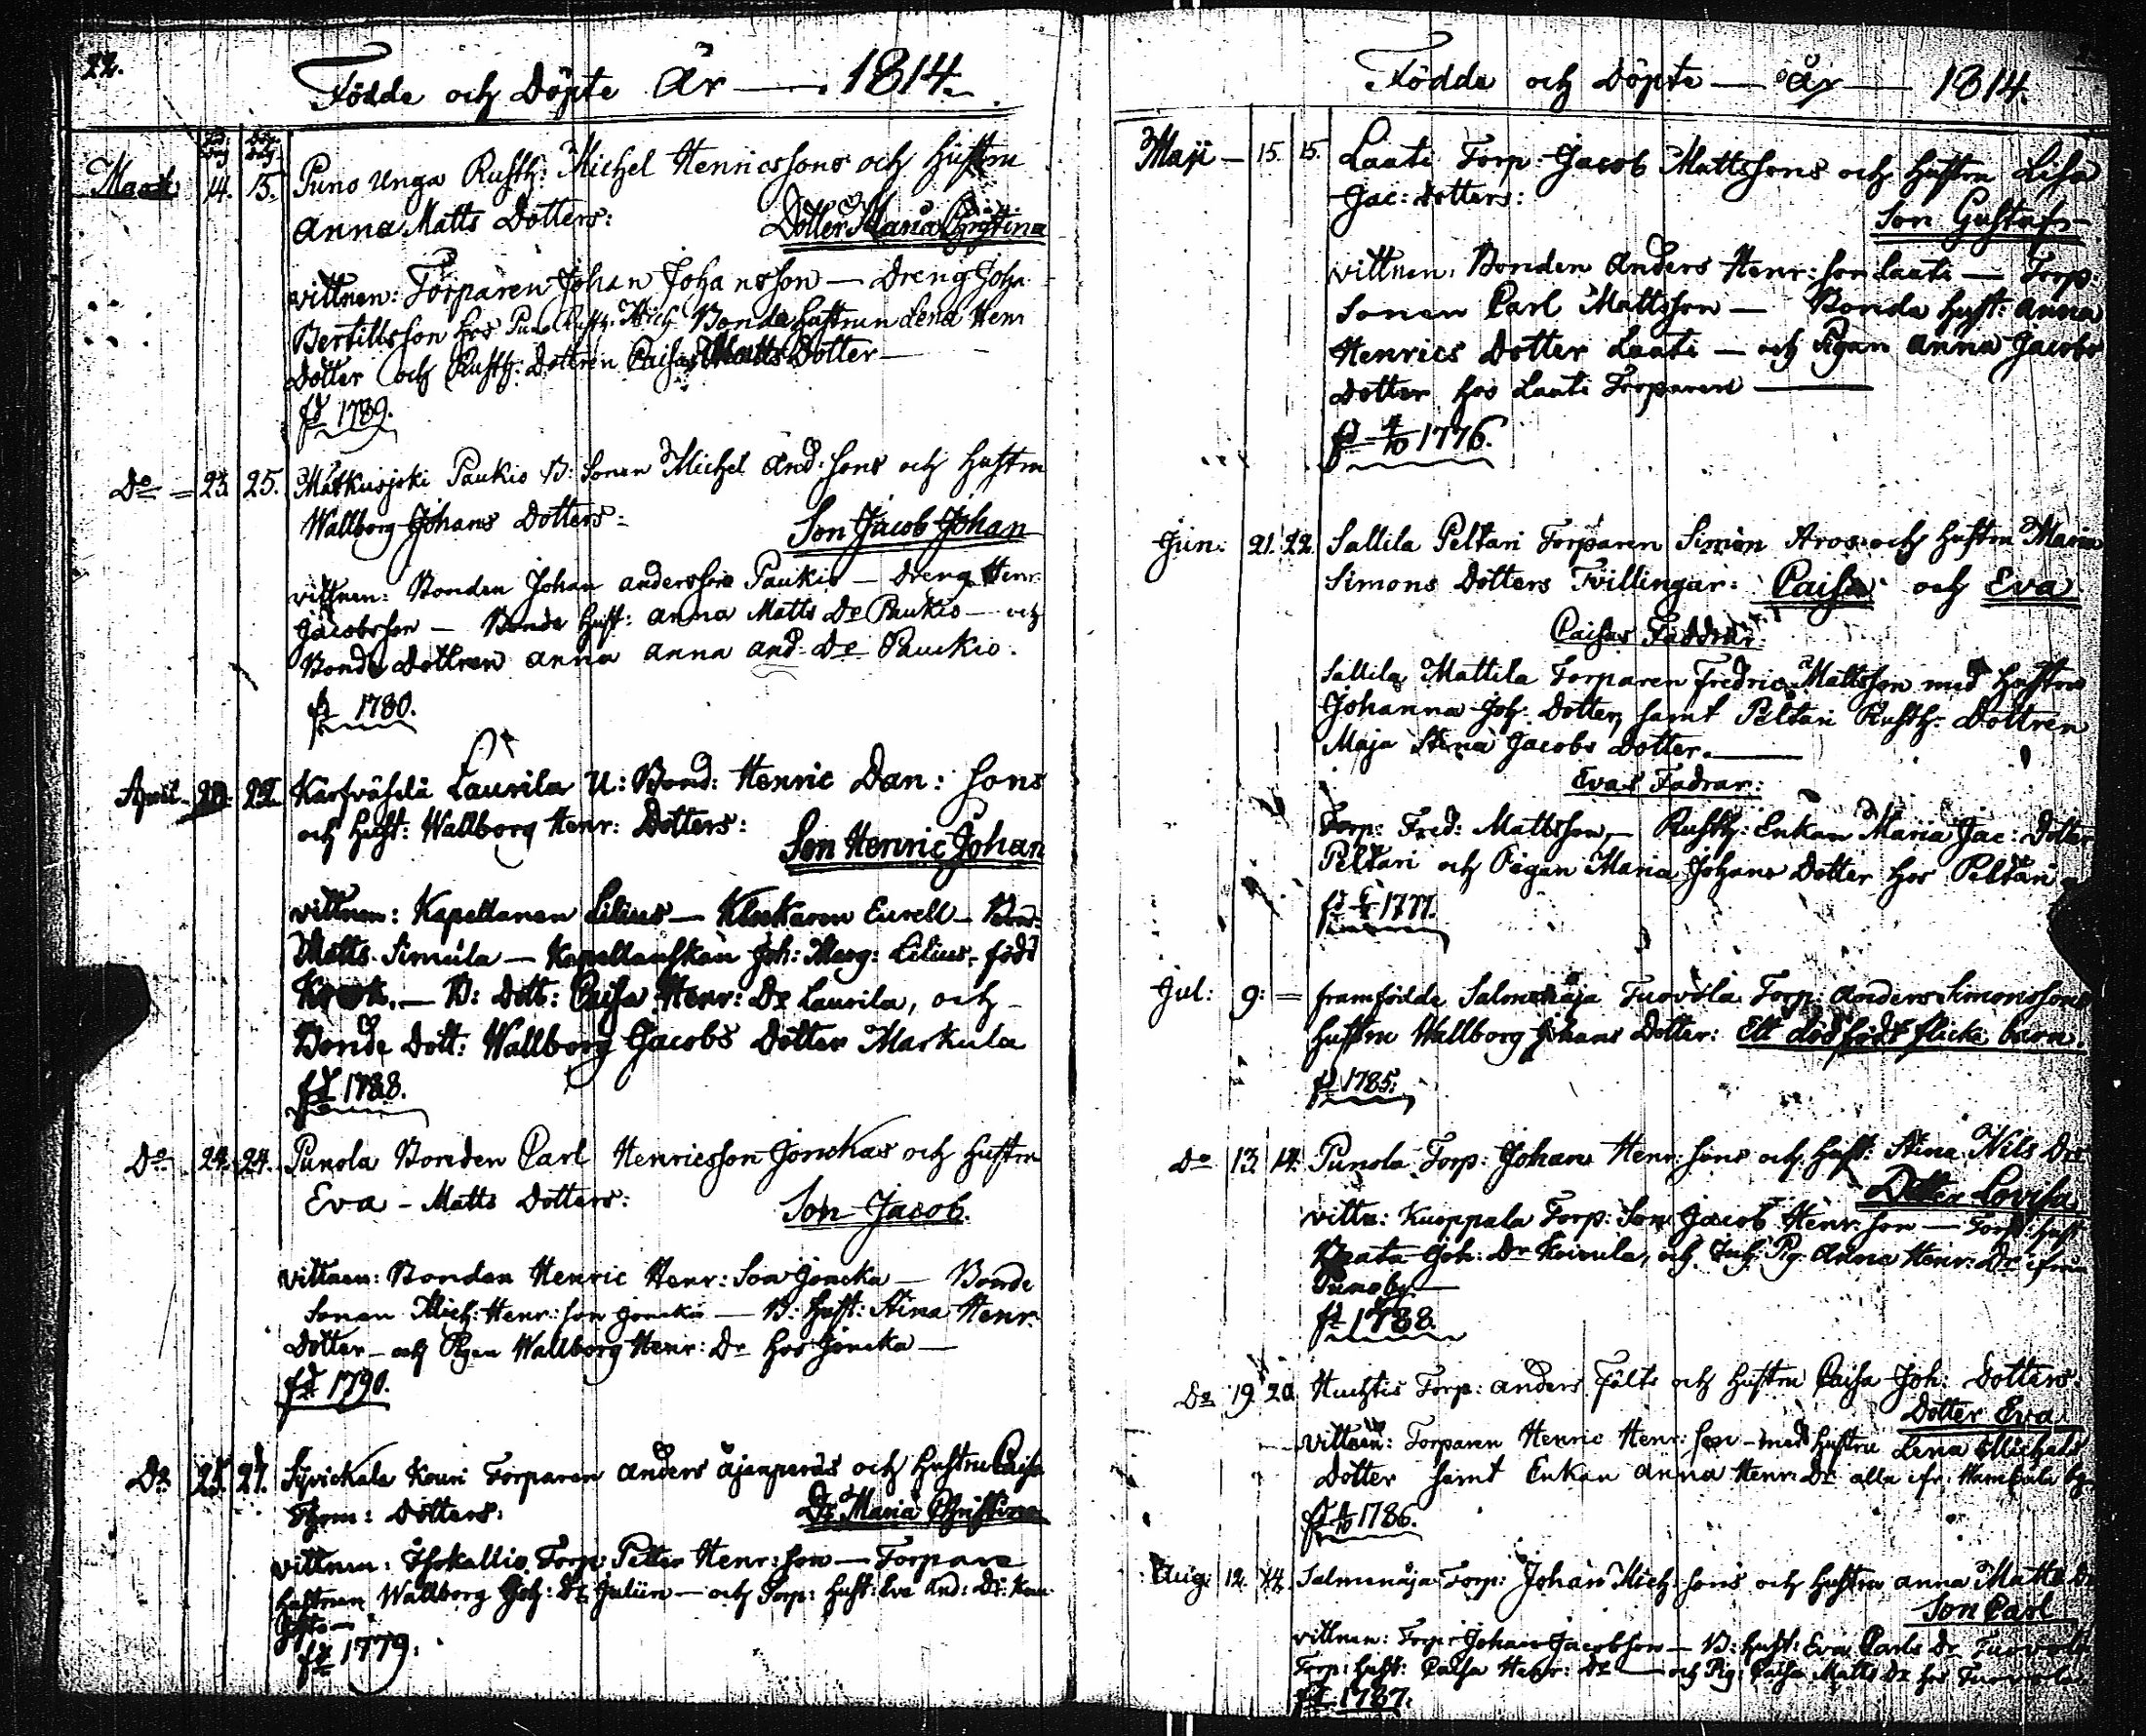 22.
Födde och Döpte År — 1814.
Mart. 14. 15. Puno Unga Rusth: Michel Henricssons och Hustru
Anna Matts Dotters: Dotter Maria Christina
vittnen: Torparen Johan Johansson — Dreng Joha
Bertillsson hos Puno Rusth. Mich Bonde hustrun Lena Henr
Dotter och Rusth: Dottren Caisa Matts Dotter —
fd 1789.
Do = 23. 25. Matkusjoki Paukio B: Sonen Michel And: sons och Hustru
Wallborg Johans Dotters: Son Jacob Johan
vittnen: Bonden Johan Andersson Paukio — Dreng Henr.
Jacobsson — Bonde Hust: Anna Matts Dr Paukio — och
Bonde Dottren Anna Anna And: Dr Paukio.
fd 1780.
April 22. Karhvähilä Laurila U: Bond: Henric Dan: sons
och Hust: Wallborg Henr: Dotters: Son Henric Johan
vittnen: Kapellanen Lilius — Klockaren Eurell — Bond.
Matts Simula — Kapellanskan Joh: Marg: Lilius, född
— B: Dott: Caisa Henr: Dr Laurila, och —
Bonde Dott: Wallborg Jacobs Dotter Markula
fd 1788.
Do 24. 24. Punola Bonden Carl Henricsson Jonckas och Hustru
Eva – Matts Dotters: Son Jacob.
vittnen: Bonden Henric Henr: Son Joncka — Bonde
Sonen Mich: Henr: son Joncka — B: Hust: Stina Henr:
Dotter — och Pigan Wallborg Henr: Dr hos Joncka —
fd 1790.
Do 25. 27. Kouri Torparen Anders Äjänperäs och Hustru Caisa
Thom: Dotters: Dr Maria Christina
vittnen: Isokallio Torp: Petter Henr: son — Torpare
hustrun Wallborg Joh: Dr — och Torp: Hust: Eva And: Dr
fd 1779.
Födde och Döpte — År — 1814.
Maji — 15. 15. Laati Torp: Jacob Mattssons och Hustru Lisa
Jac: Dotters: Son Gustaf
vittnen: Bonden Anders Henr: son Laati — Torp:
Sonen Carl Mattsson — Bonde Hust: Anna
Henrics Dotter Laati — och Pigan Anna Jacobs
Dotter hos Laati Torparen —
fd 1776.
Jun: 21. 22. Sallila Peltari Torparen Simon Aros och Hustru Maria
Simons Dotters Tvillingar: Caisa och Eva
Caisas Faddrar:
Sallila Mattila Torparen Fredric Mattsson med Hustru
Johanna Joh: Dotter, samt Peltari Rusth: Dottren
Maja Stina Jacobs Dotter. —
Evas Fadrar:
Torp: Fred: Mattsson, — Rusth: Enkan Maria Jac: Dotter
Peltari och Pigan Maria Johans Dotter hos Peltari
fd 1777.
Jul: 9: = framfödde Salmenäja Tuovola Torp: Anders Simonssons
Hustru Wallborg Johans Dotter: Ett dödfödt flicke barn.
fd 1785.
Do 13. 14. Punola Torp: Johan Henr: sons och Hust: Stina Nils Drs
Dotter Lovisa
vittn: Kuoppala Torp: Son Jacob Henr: son — Torp: hust
Beata Joh: Dr Koivula, och Inh: Pig Anna Henr: Dr ifrån
Puno by. —
fd 1788.
Do 19. 20. Huchtis Torp: Anders Fälts och Hustru Caisa Joh: Dotters.
Dotter Eva
vittnen: Torparen Henric Henr: son — med hustru Lena Michels
Dotter samt Enkan Anna Henr: Dr alla ifr:
fd 1786.
Aug: 12. 14. Salmenäja Torp: Johan Mich: sons och Hustru Anna Matts Dr
Son Carl
vittnen: Torp: Johan Jacobsson — B: Hust: Eva Carls Dr Tuovola
Torp: hust: Caisa Henr: Dr — och Pig: Caisa Matts Dr hos Tuovola
fd 1787.